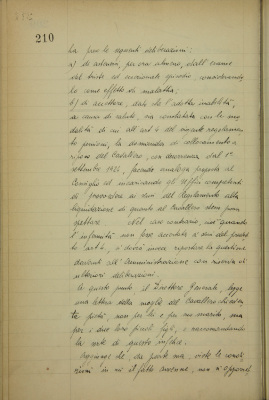 210
ha preso le seguenti deliberazioni:
a) di astenersi, per ora almeno, dall'esame
del triste ed eccezionale giudizio, considerando
lo come effetto di malattia;
b) di accettare, dato che l'addetta inabilità,
a causa di salute, sia constatata con le mo
dalità di cui all'art 4 del vigente regolamento
pensioni, la domanda di collocamento a
riposo del Cavalliere, con decorrenza, dal 1°
settembre 1921, facendo analoga proposta al
Consiglio ed incaricando gli uffici competenti
di provvedere ai sensi del Regolamento alla
liquidazione di quanto al Cavalliere stesso possa
spettare. Nel caso contrario, cioè quando
l'infermità non fosse accertata ai sensi del
art 4, si dovrà invece riportare la questione
davanti all'Amministrazione con riserva di
ulteriori deliberazioni.
A questo punto il Direttore Generale, legge
una lettera della moglie del Cavalliere
pietà, non per lei e pel suo marito, ma
per i due loro piccoli figli, e raccomandando
la sorte di questi infelici.
Soggiunge che da parte sua, viste le condi
zioni in cui il fatto avvenne, non si opporrebbe